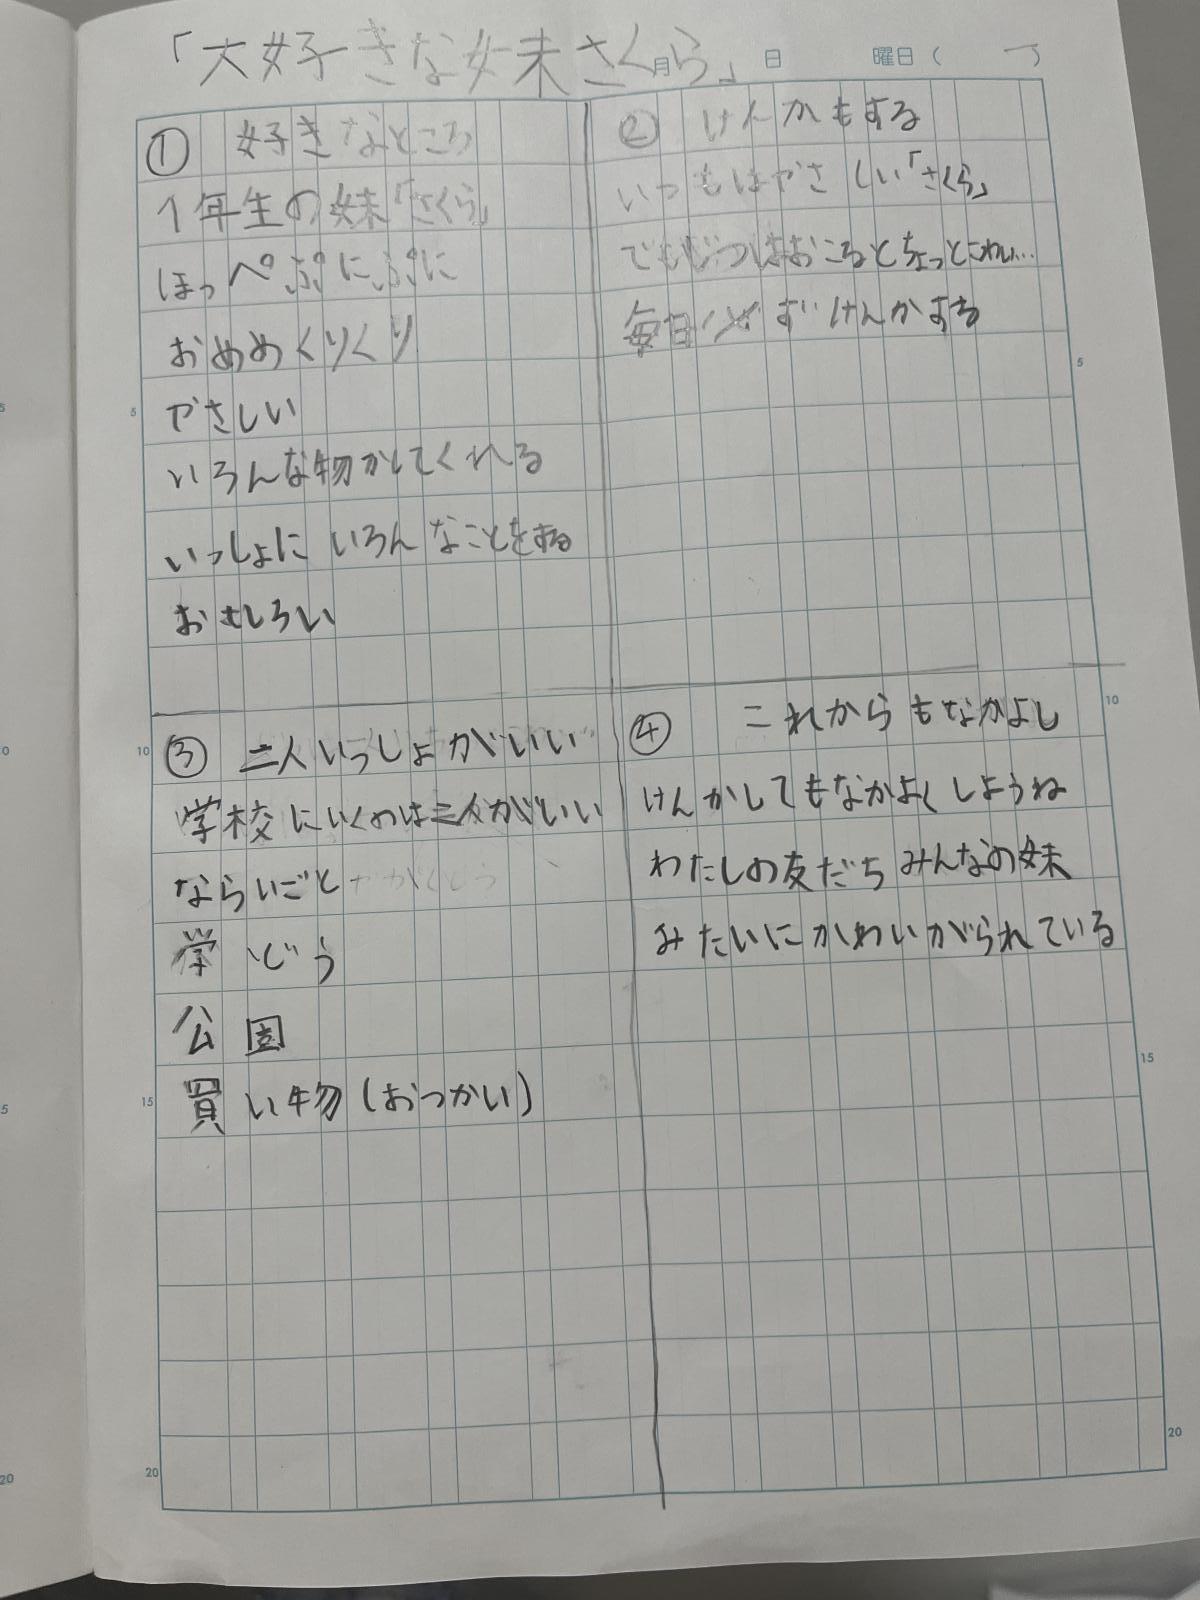 「大好きな妹さくら」
月 日 曜日( )
① 好きなところ
1年生の妹「さくら」
ほっぺぷにぷに
おめめくりくり
やさしい
いろんな物かしてくれる
いっしょにいろんなことをする
おもしろい
② けんかもする
いつもはやさしい「さくら」
でもじつはおこるとちょっとこわい…
毎日必ずけんかする
③ 二人いっしょがいい
学校にいくのは二人がいい
ならいごと
学どう
公園
買い物(おつかい)
④ これからもなかよし
けんかしてもなかよくしようね
わたしの友だちみんなの妹
みたいにかわいがられている
5
10
15
20
5
10
15
20